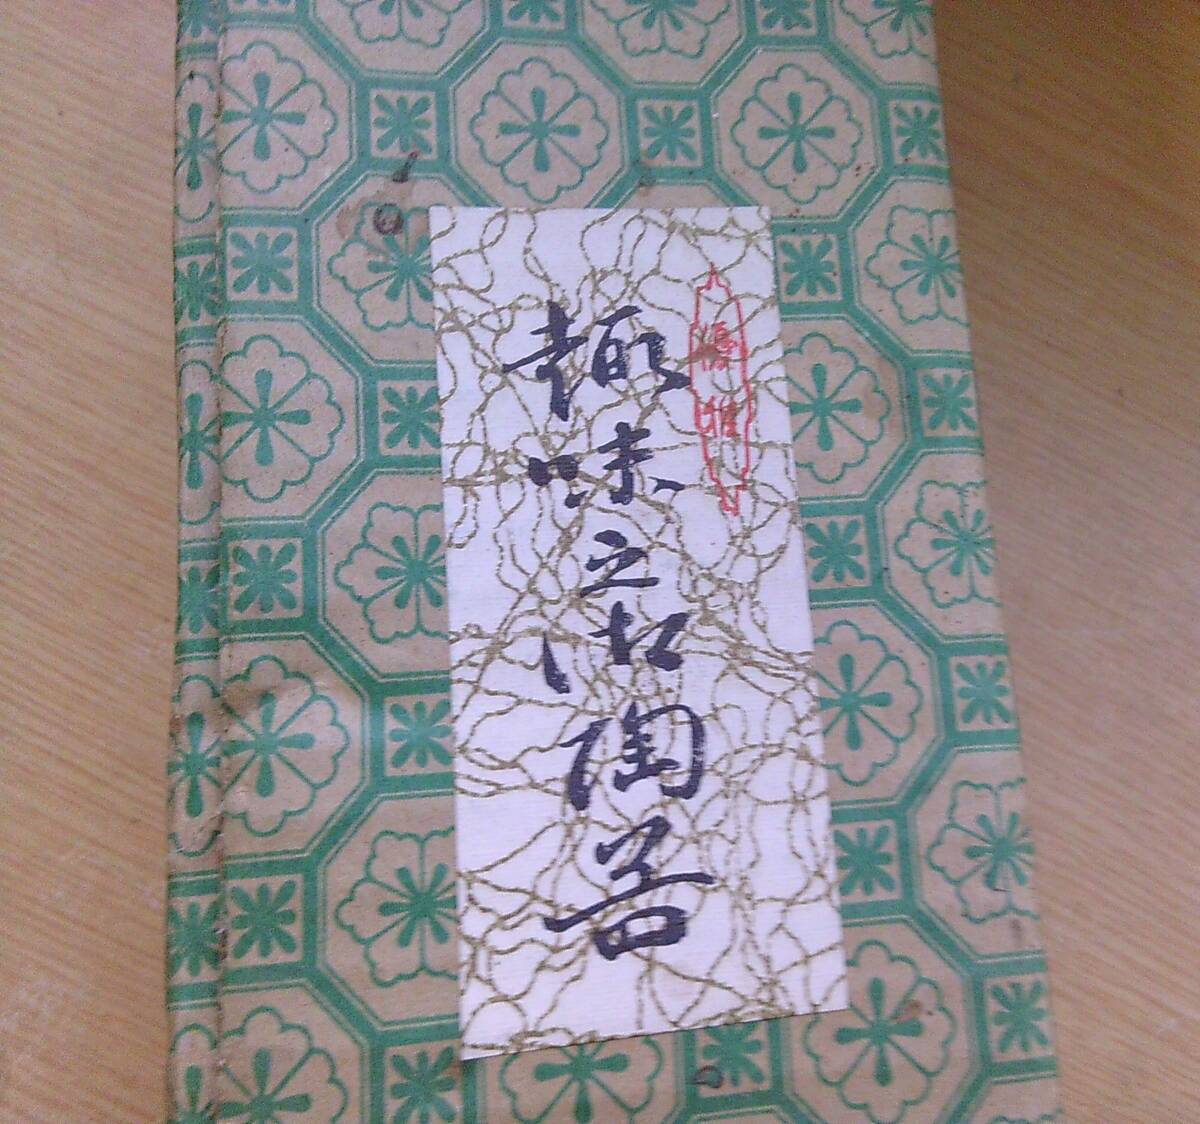 優雅
趣味之陶